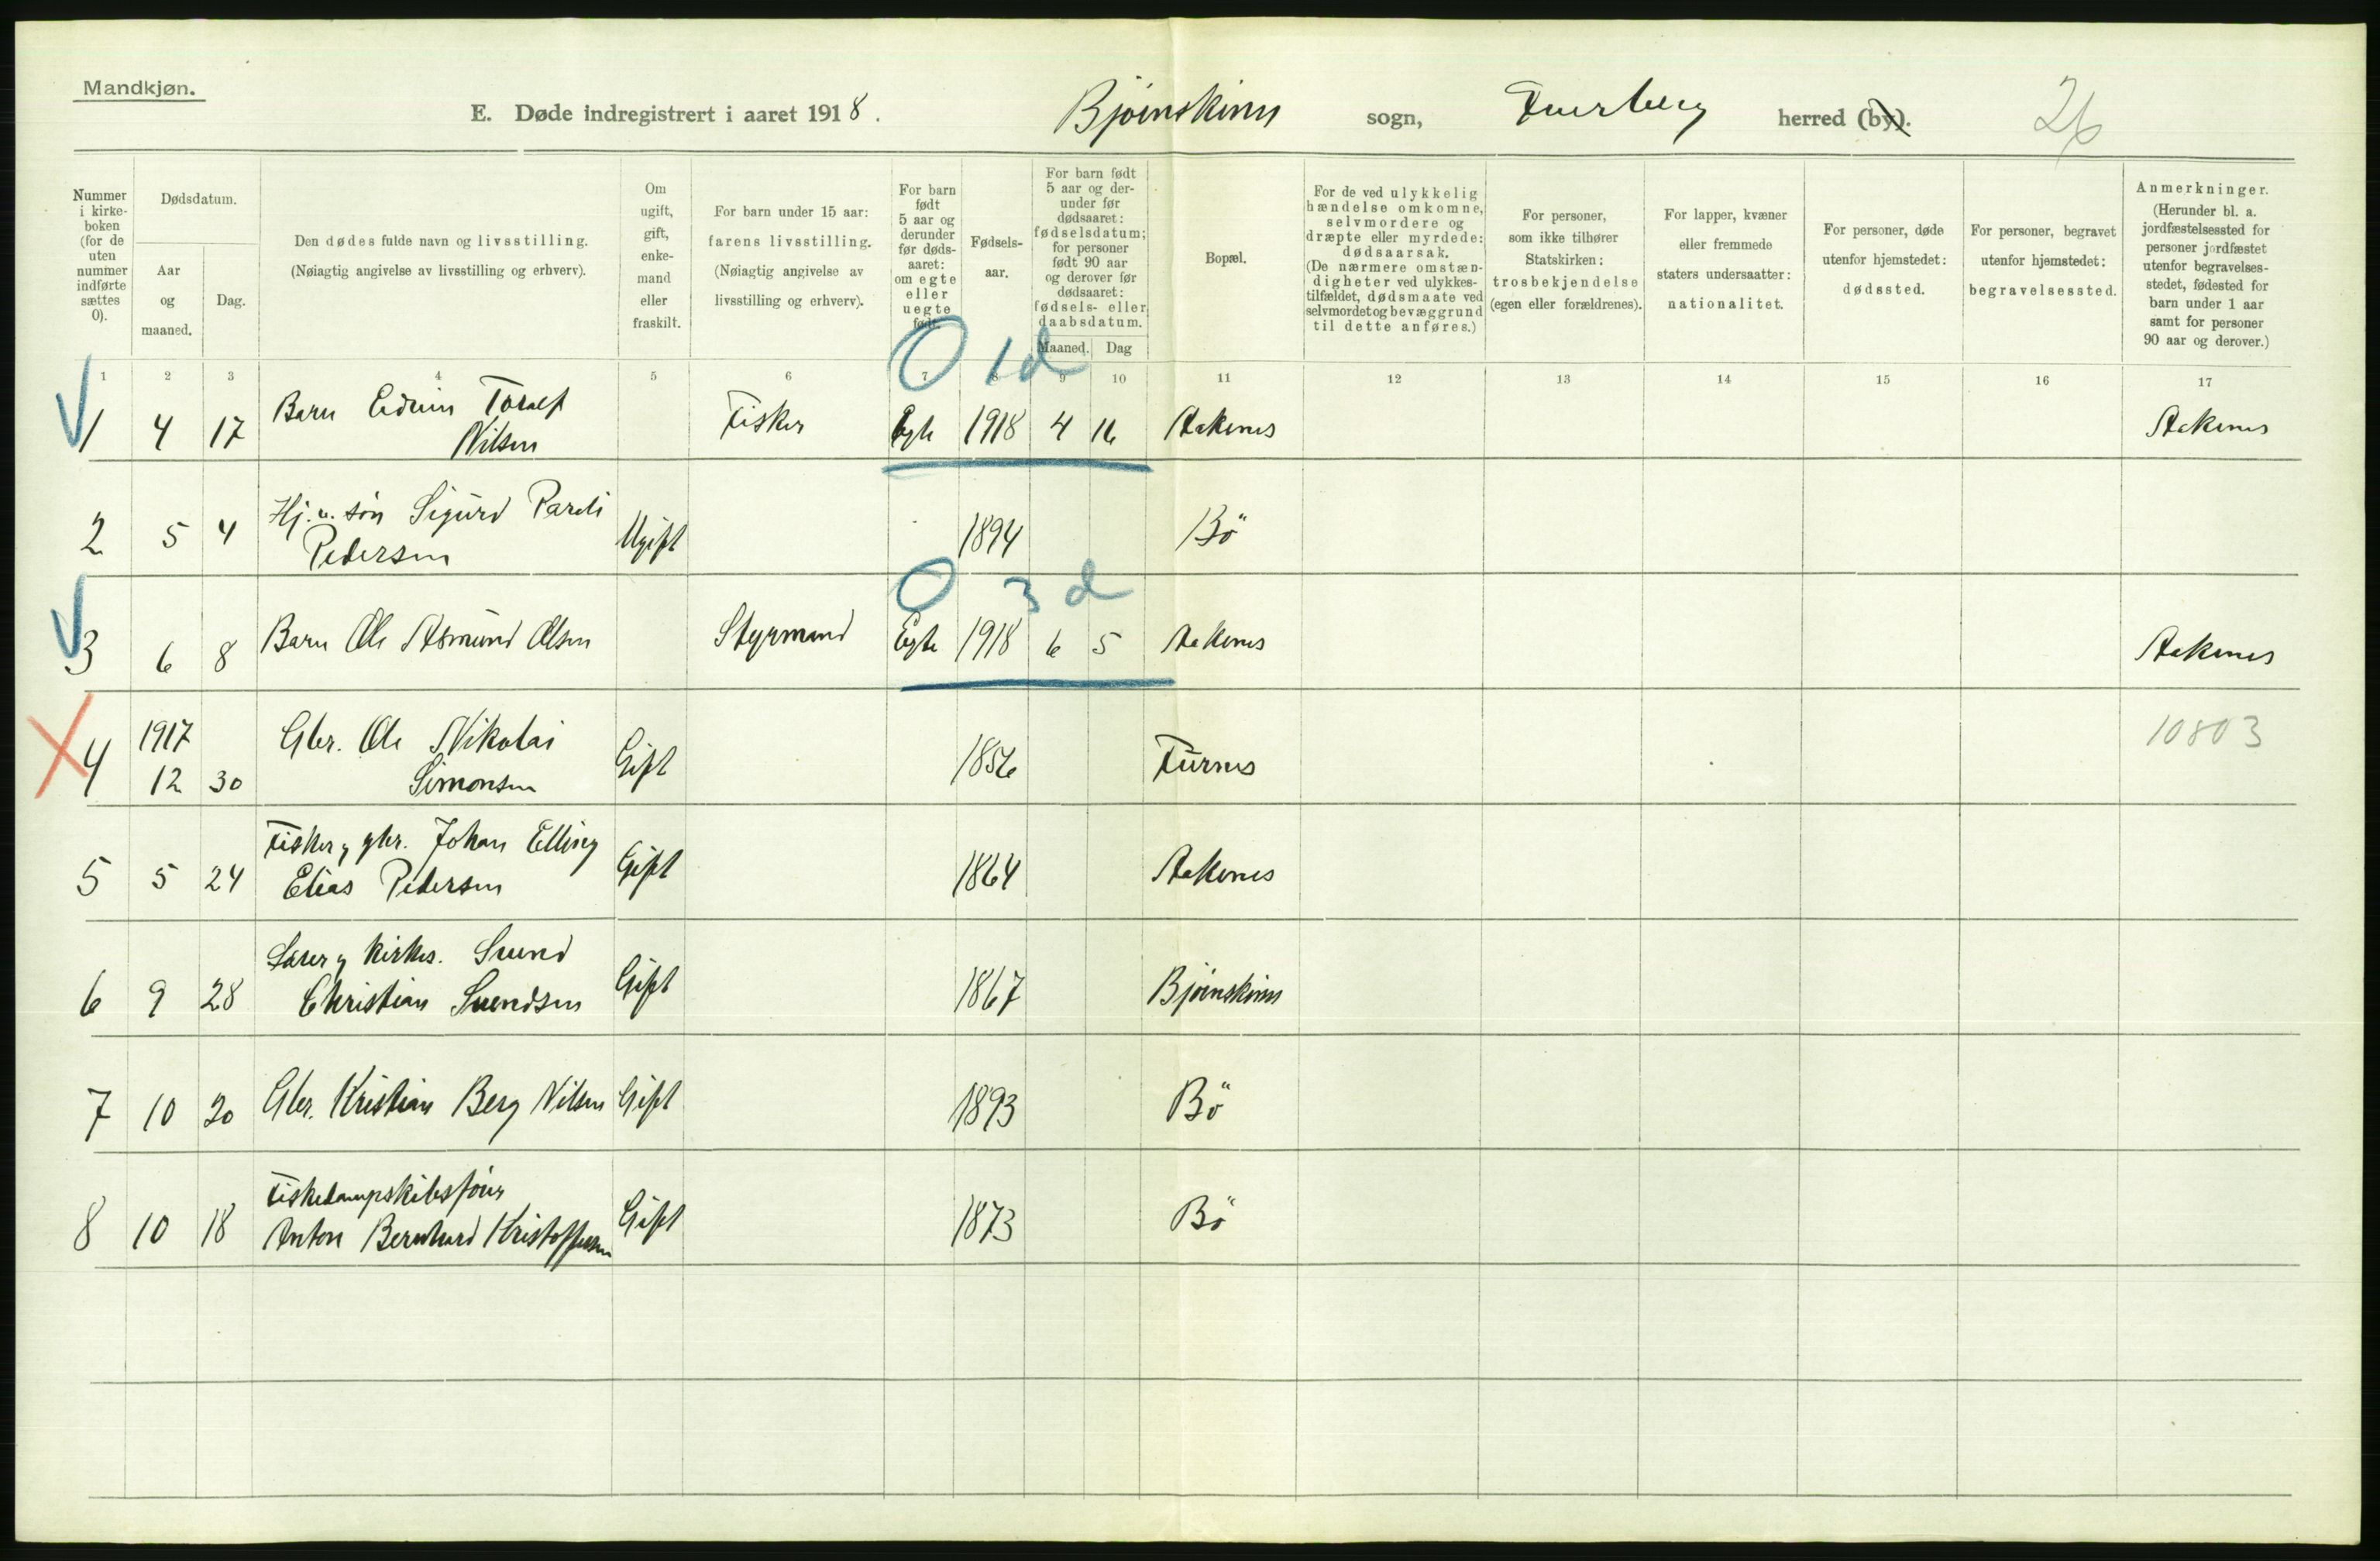 Mandkjøn.
E. Døde indregistrert i aaret 1918. Bjørnskinn sogn, Tverberg herred (by). 26
Nummer i kirke-boken (for de uten nummer indførte sættes 0).
Dødsdatum.
Aar og maaned.
Dag.
Den dødes fulde navn og livsstilling.
(Nøiagtig angivelse av livsstilling og erhverv).
Om ugift, gift, enke-mand eller fraskilt.
For barn under 15 aar: farens livsstilling.
(Nøiagtig angivelse av livsstilling og erhverv).
For barn født 5 aar og derunder før døds-aaret: om egte eller uegte født.
Fødsels-aar.
For barn født 5 aar og der-under før dødsaaret: fødselsdatum; for personer født 90 aar og derover før dødsaaret: fødsels- eller daabsdatum.
Maaned. Dag
Bopæl.
For de ved ulykkelig hændelse omkomne, selvmordere og dræpte eller myrdede: dødsaarsak.
(De nærmere omstæn-digheter ved ulykkes-tilfældet, dødsmaate ved selvmordet og bevæggrund til dette anføres.)
For personer, som ikke tilhører Statskirken: trosbekjendelse (egen eller forældrenes).
For lapper, kvæner eller fremmede staters undersaatter: nationalitet.
For personer, døde utenfor hjemstedet: dødssted.
For personer, begravet utenfor hjemstedet: begravelsessted.
Anmerkninger.
(Herunder bl. a. jordfæstelsessted for personer jordfæstet utenfor begravelses-stedet, fødested for barn under 1 aar samt for personer 90 aar og derover.)
1 2 3 4 5 6 7 8 9 10 11 12 13 14 15 16 17
0 1d
1 4 17 Barn Edvin Toralf Fisker Egte 1918 4 16 Aakenes Aakenes
Nilsen
2 5 4 Hj.v. søn Sigurd Pareli Ugift 1894 Bö
Pedersen
0 3 d
3 6 8 Barn Ole Asmund Olsen Styrmand Egte 1918 6 5 Aakenes Aakenes
1917 Gbr. Ole Nikolai 10803
4 12 30 Simonsen Gift 1856 Furnes
Fisker, gbr. Johan Elling
5 5 24 Elias Pedersen Gift 1864 Aakenes
Lærer, kirkes. Svend
6 9 28 Christian Svendsen Gift 1867 Bjørnskinn
7 10 20 Gbr. Kristian Berg Nilsen Gift 1893 Bö
Fiskedampskibsförer
8 10 18 Anton Bernhard Kristoffersen Gift 1873 Bö